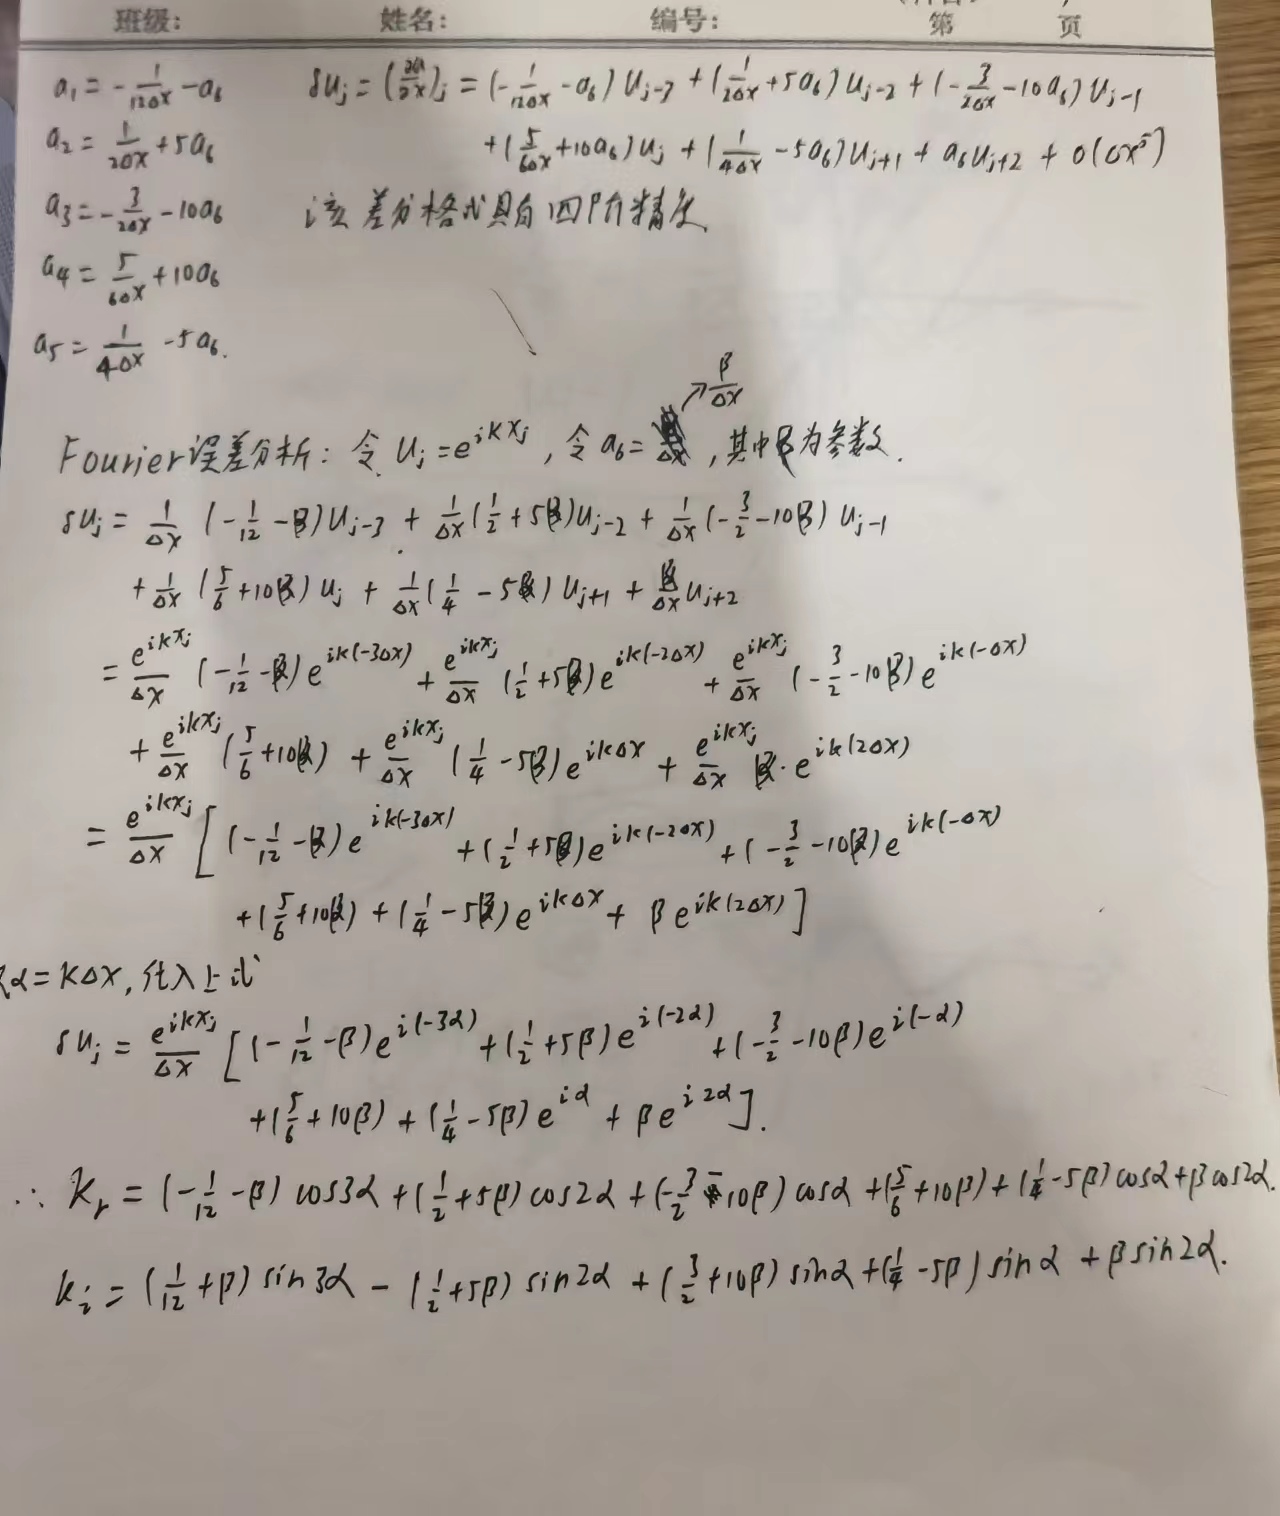 班级: 姓名: 编号: 第 页
a₁ = -1/(12Δx) - a₆ δu_j = (∂u/∂x)_j = (-1/(12Δx) - a₆) u_{j-3} + (1/(2Δx) + 5a₆) u_{j-2} + (-3/(2Δx) - 10a₆) u_{j-1}
a₂ = 1/(2Δx) + 5a₆ + (5/(6Δx) + 10a₆) u_j + (1/(4Δx) - 5a₆) u_{j+1} + a₆u_{j+2} + O(Δx⁵)
a₃ = -3/(2Δx) - 10a₆ 该差分格式具有四阶精度
a₄ = 5/(6Δx) + 10a₆
a₅ = 1/(4Δx) - 5a₆.
β/Δx
Fourier误差分析: 令 u_j = e^{ikx_j}, 令 a₆ = , 其中β为参数.
δu_j = 1/Δx (-1/12 - β) u_{j-3} + 1/Δx (1/2 + 5β) u_{j-2} + 1/Δx (-3/2 - 10β) u_{j-1}
+ 1/Δx (5/6 + 10β) u_j + 1/Δx (1/4 - 5β) u_{j+1} + β/Δx u_{j+2}
= e^{ikx_j}/Δx (-1/12 - β) e^{ik(-3Δx)} + e^{ikx_j}/Δx (1/2 + 5β) e^{ik(-2Δx)} + e^{ikx_j}/Δx (-3/2 - 10β) e^{ik(-Δx)}
+ e^{ikx_j}/Δx (5/6 + 10β) + e^{ikx_j}/Δx (1/4 - 5β) e^{ikΔx} + e^{ikx_j}/Δx β · e^{ik(2Δx)}
= e^{ikx_j}/Δx [(-1/12 - β) e^{ik(-3Δx)} + (1/2 + 5β) e^{ik(-2Δx)} + (-3/2 - 10β) e^{ik(-Δx)}
+ (5/6 + 10β) + (1/4 - 5β) e^{ikΔx} + β e^{ik(2Δx)}]
α = kΔx, 代入上式
δu_j = e^{ikx_j}/Δx [(-1/12 - β) e^{i(-3α)} + (1/2 + 5β) e^{i(-2α)} + (-3/2 - 10β) e^{i(-α)}
+ (5/6 + 10β) + (1/4 - 5β) e^{iα} + β e^{i2α}].
∴ K_r = (-1/12 - β) cos3α + (1/2 + 5β) cos2α + (-3/2 - 10β) cosα + (5/6 + 10β) + (1/4 - 5β) cosα + β cos2α.
k_i = (1/12 + β) sin3α - (1/2 + 5β) sin2α + (3/2 + 10β) sinα + (1/4 - 5β) sinα + β sin2α.